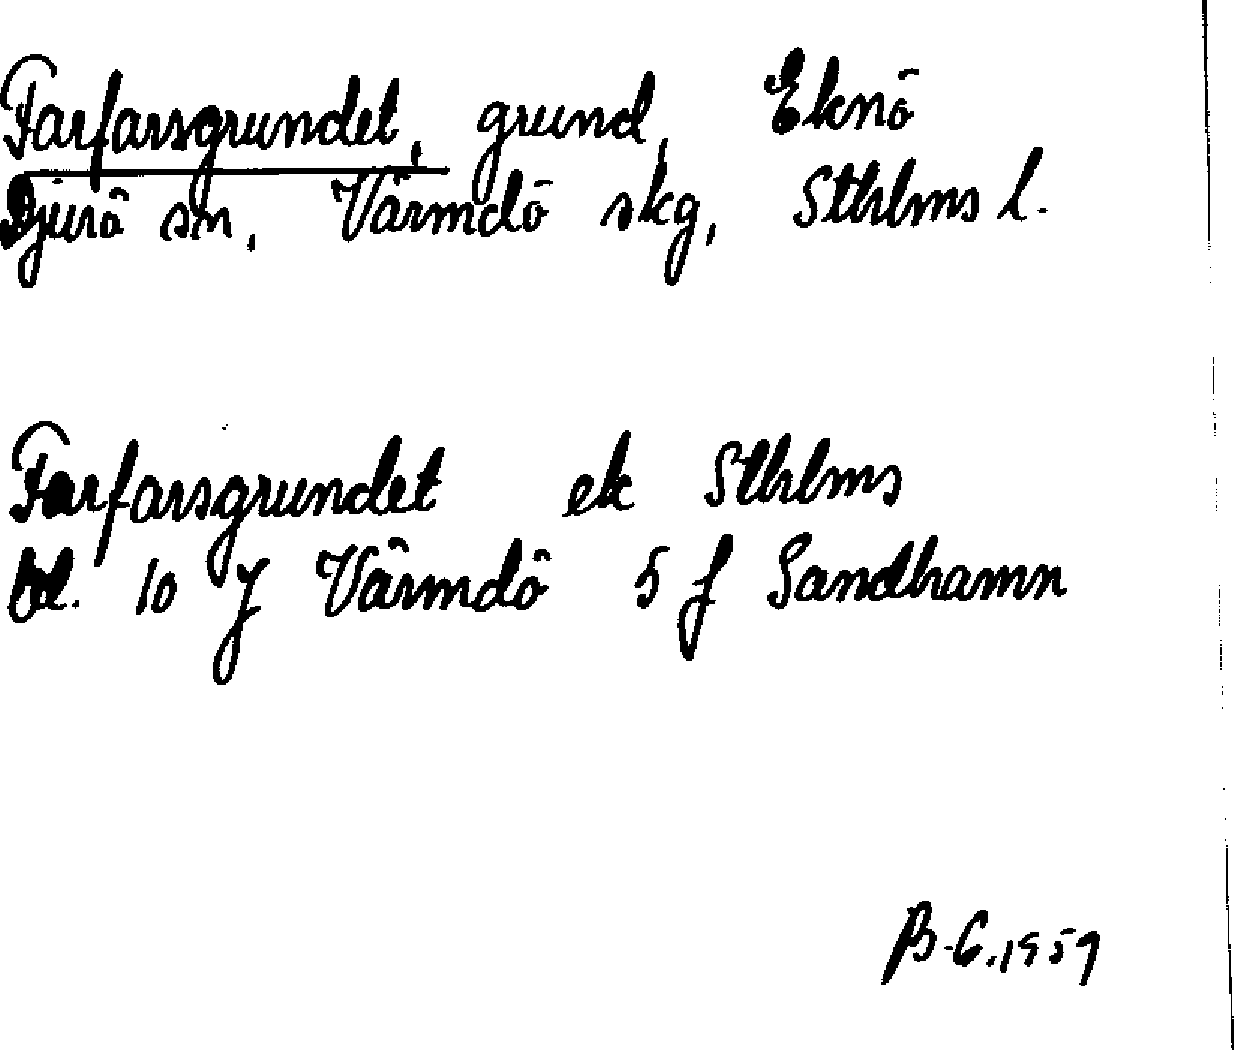 Farfarsgrundet, grund, Eknö
Djurö sn, Värmdö skg, Sthlms l.
Farfarsgrundet ek Sthlms
bl. 10 J Värmdö 5 f Sandhamn
B.G. 1959